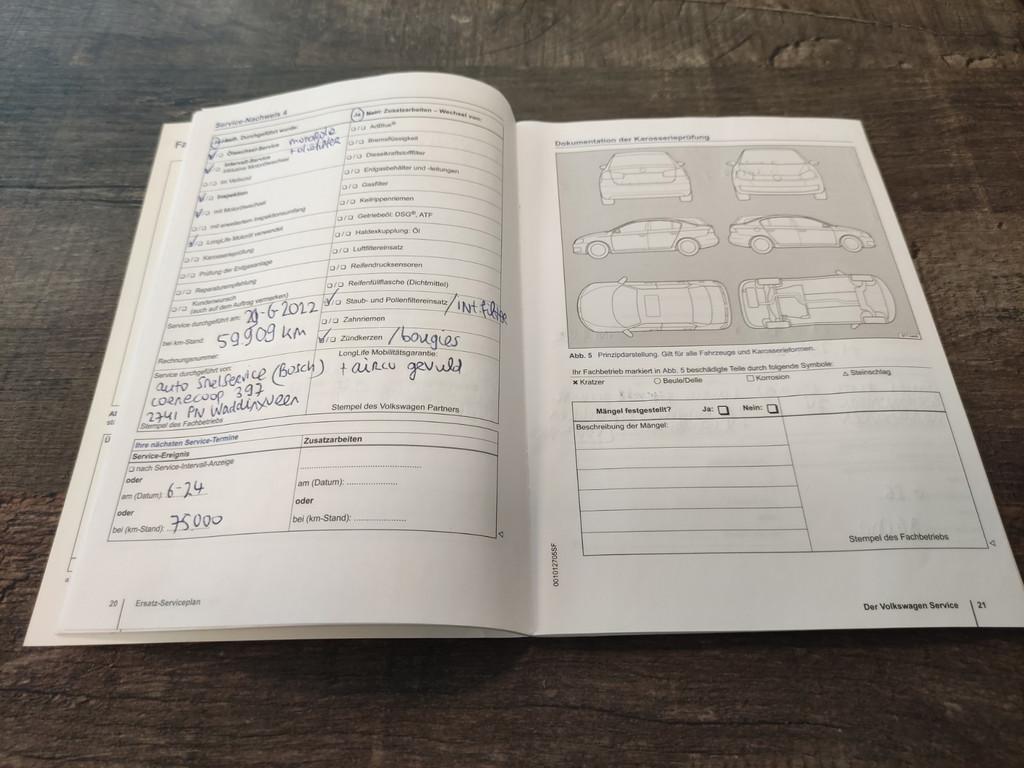 Service-Nachweis 4
Ja Nein Durchgeführt wurde:
Ölwechsel-Service motorolie
Intervall-Service + oliefilter
inklusive Motorölwechsel
Im Verbund
Inspektion
mit Motorölwechsel
mit erweitertem Inspektionsumfang
LongLife Motoröl verwendet
Karosserieprüfung
Prüfung der Erdgasanlage
Reparaturempfehlung
Kundenwunsch
(auch auf dem Auftrag vermerken)
Service durchgeführt am: 29-6-2022
bei km-Stand: 59.909 km
Rechnungsnummer:
Service durchgeführt von:
auto Snelservice (Bosch)
coenecoop 397
2741 PN Waddinxveen
Stempel des Fachbetriebs
Ja Nein Zusatzarbeiten – Wechsel von:
AdBlue®
Bremsflüssigkeit
Dieselkraftstofffilter
Erdgasbehälter und -leitungen
Gasfilter
Keilrippenriemen
Getriebeöl: DSG®, ATF
Haldexkupplung: Öl
Luftfiltereinsatz
Reifendrucksensoren
Reifenfüllflasche (Dichtmittel)
Staub- und Pollenfiltereinsatz / INT. filter
Zahnriemen
Zündkerzen / bougies
LongLife Mobilitätsgarantie:
+ airco gevuld
Stempel des Volkswagen Partners
Ihre nächsten Service-Termine
Service-Ereignis
nach Service-Intervall-Anzeige
oder
am (Datum): 6-24
oder
bei (km-Stand): 75000
Zusatzarbeiten
am (Datum):
oder
bei (km-Stand):
20 Ersatz-Serviceplan
Dokumentation der Karosserieprüfung
Abb. 5 Prinzipdarstellung. Gilt für alle Fahrzeugs und Karosserieformen.
Ihr Fachbetrieb markiert in Abb. 5 beschädigte Teile durch folgende Symbole:
x Kratzer Beule/Delle Korrosion Steinschlag
Mängel festgestellt? Ja: Nein:
Beschreibung der Mängel:
Stempel des Fachbetriebs
001012705SF
Der Volkswagen Service 21